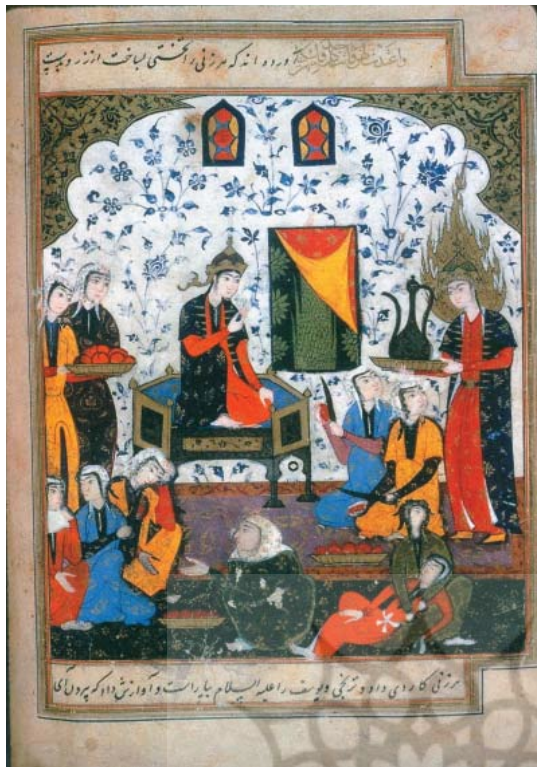 ورده اند که هر زنی را تختی بساخت از زر و
هر زنی کاردی داد و ترنجی و یوسف را علیه السلام بیاراست و آوازش داد که بیرون آی